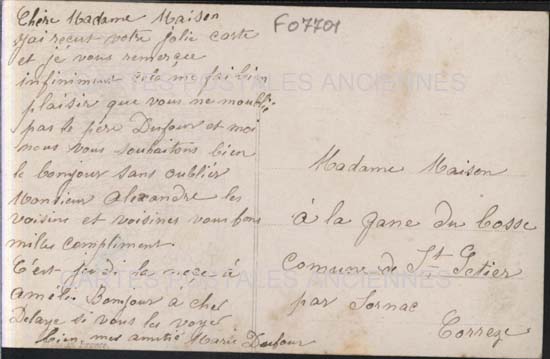 Chère Madame Maison
j'ai recut votre jolie carte
et je vous remercie
infiniment cela me fai bien
plaisir que vous ne moublié
pas le père Dufour et moi
nous vous souhaitons bien
le bonjour sans oublier
Monsieur Alexandre les
voisins et voisines vous fons
miles compliment
C'est jeudi la noce à
Amélie Bonjour a chez
Delage si vous les voyer
bien, mes amitié Marie Dufour
F07701
Madame Maison
à la gane du bosse
Comune de St Setier
par Sornac
Correze
CARTES POSTALES ANCIENNES
CARTES POSTALES ANCIENNES